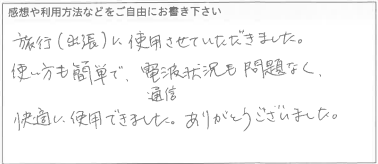 感想や利用方法などをご自由にお書き下さい
旅行(出張)に使用させていただきました。
使い方も簡単で、電波状況も問題なく、
通信
快適に使用できました。ありがとうございました。